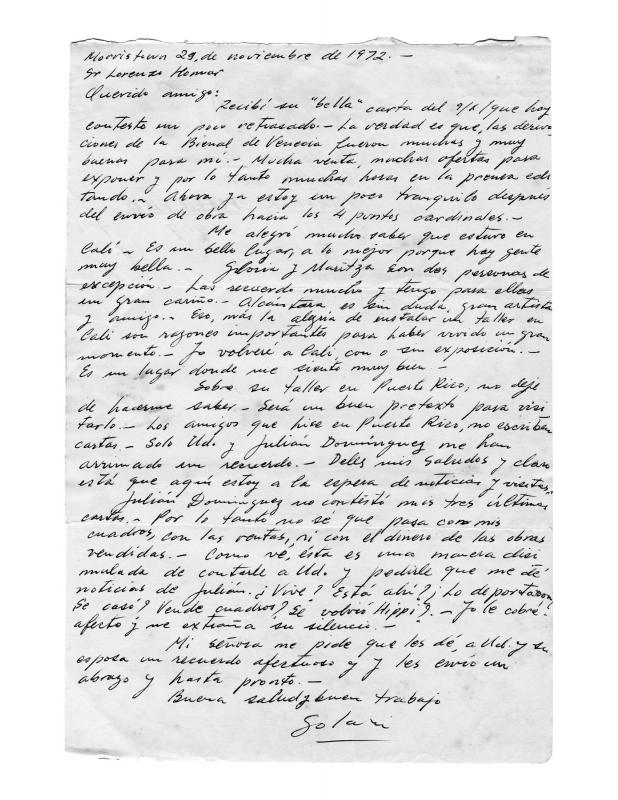 Morristown 29, de noviembre de 1972.—
Sr Lorenzo Homar
Querido amigo:
Recibí su "bella" carta del 9/X/ que hoy
contesto un poco retrasado.— La verdad es que, las deriva
ciones de la Bienal de Venecia fueron muchas y muy
buenas para mí.— Mucha venta, muchas ofertas para
exponer y por lo tanto muchas horas en la prensa edi
tando.— Ahora ya estoy un poco tranquilo después
del envío de obra hacia los 4 puntos cardinales.—
Me alegró mucho saber que estuvo en
Cali.— Es un bello lugar, a lo mejor porque hay gente
muy bella.— Gloria y Maritza son dos personas de
excepción.— Las recuerdo mucho y tengo para ellas
un gran cariño.— Alcántara, es sin duda, gran artista
y amigo.— Eso, más la alegría de instalar un taller en
Cali son razones importantes para haber vivido un gran
momento.— Yo volveré a Cali, con o sin exposición.—
Es un lugar donde me siento muy bien.—
Sobre su taller en Puerto Rico, no deje
de hacerme saber.— Será un buen pretexto para visi
tarlo.— Los amigos que hice en Puerto Rico, no escriben
cartas.— Solo Ud. y Julián Domínguez me han
arrimado un recuerdo.— Deles mis saludos y claro
está que aquí estoy a la espera de noticias y visitas.
Julián Dominguez no contestó mis tres últimas
cartas.— Por lo tanto no sé que pasa con mis
cuadros, con las ventas, ni con el dinero de las obras
vendidas.— Como vé, ésta es una manera disi
mulada de contarle a Ud. y pedirle que me dé
noticias de Julián. ¿Vive? Está ahí? ¿Lo deportaron?
Se casó? Vende cuadros? Se volvió Hippi?.— Yo le cobré
afecto y me extraña su silencio.—
Mi señora me pide que les dé, a Ud. y su
esposa un recuerdo afectuoso y y les envío un
abrazo y hasta pronto.—
Buena salud y buen trabajo
Solari